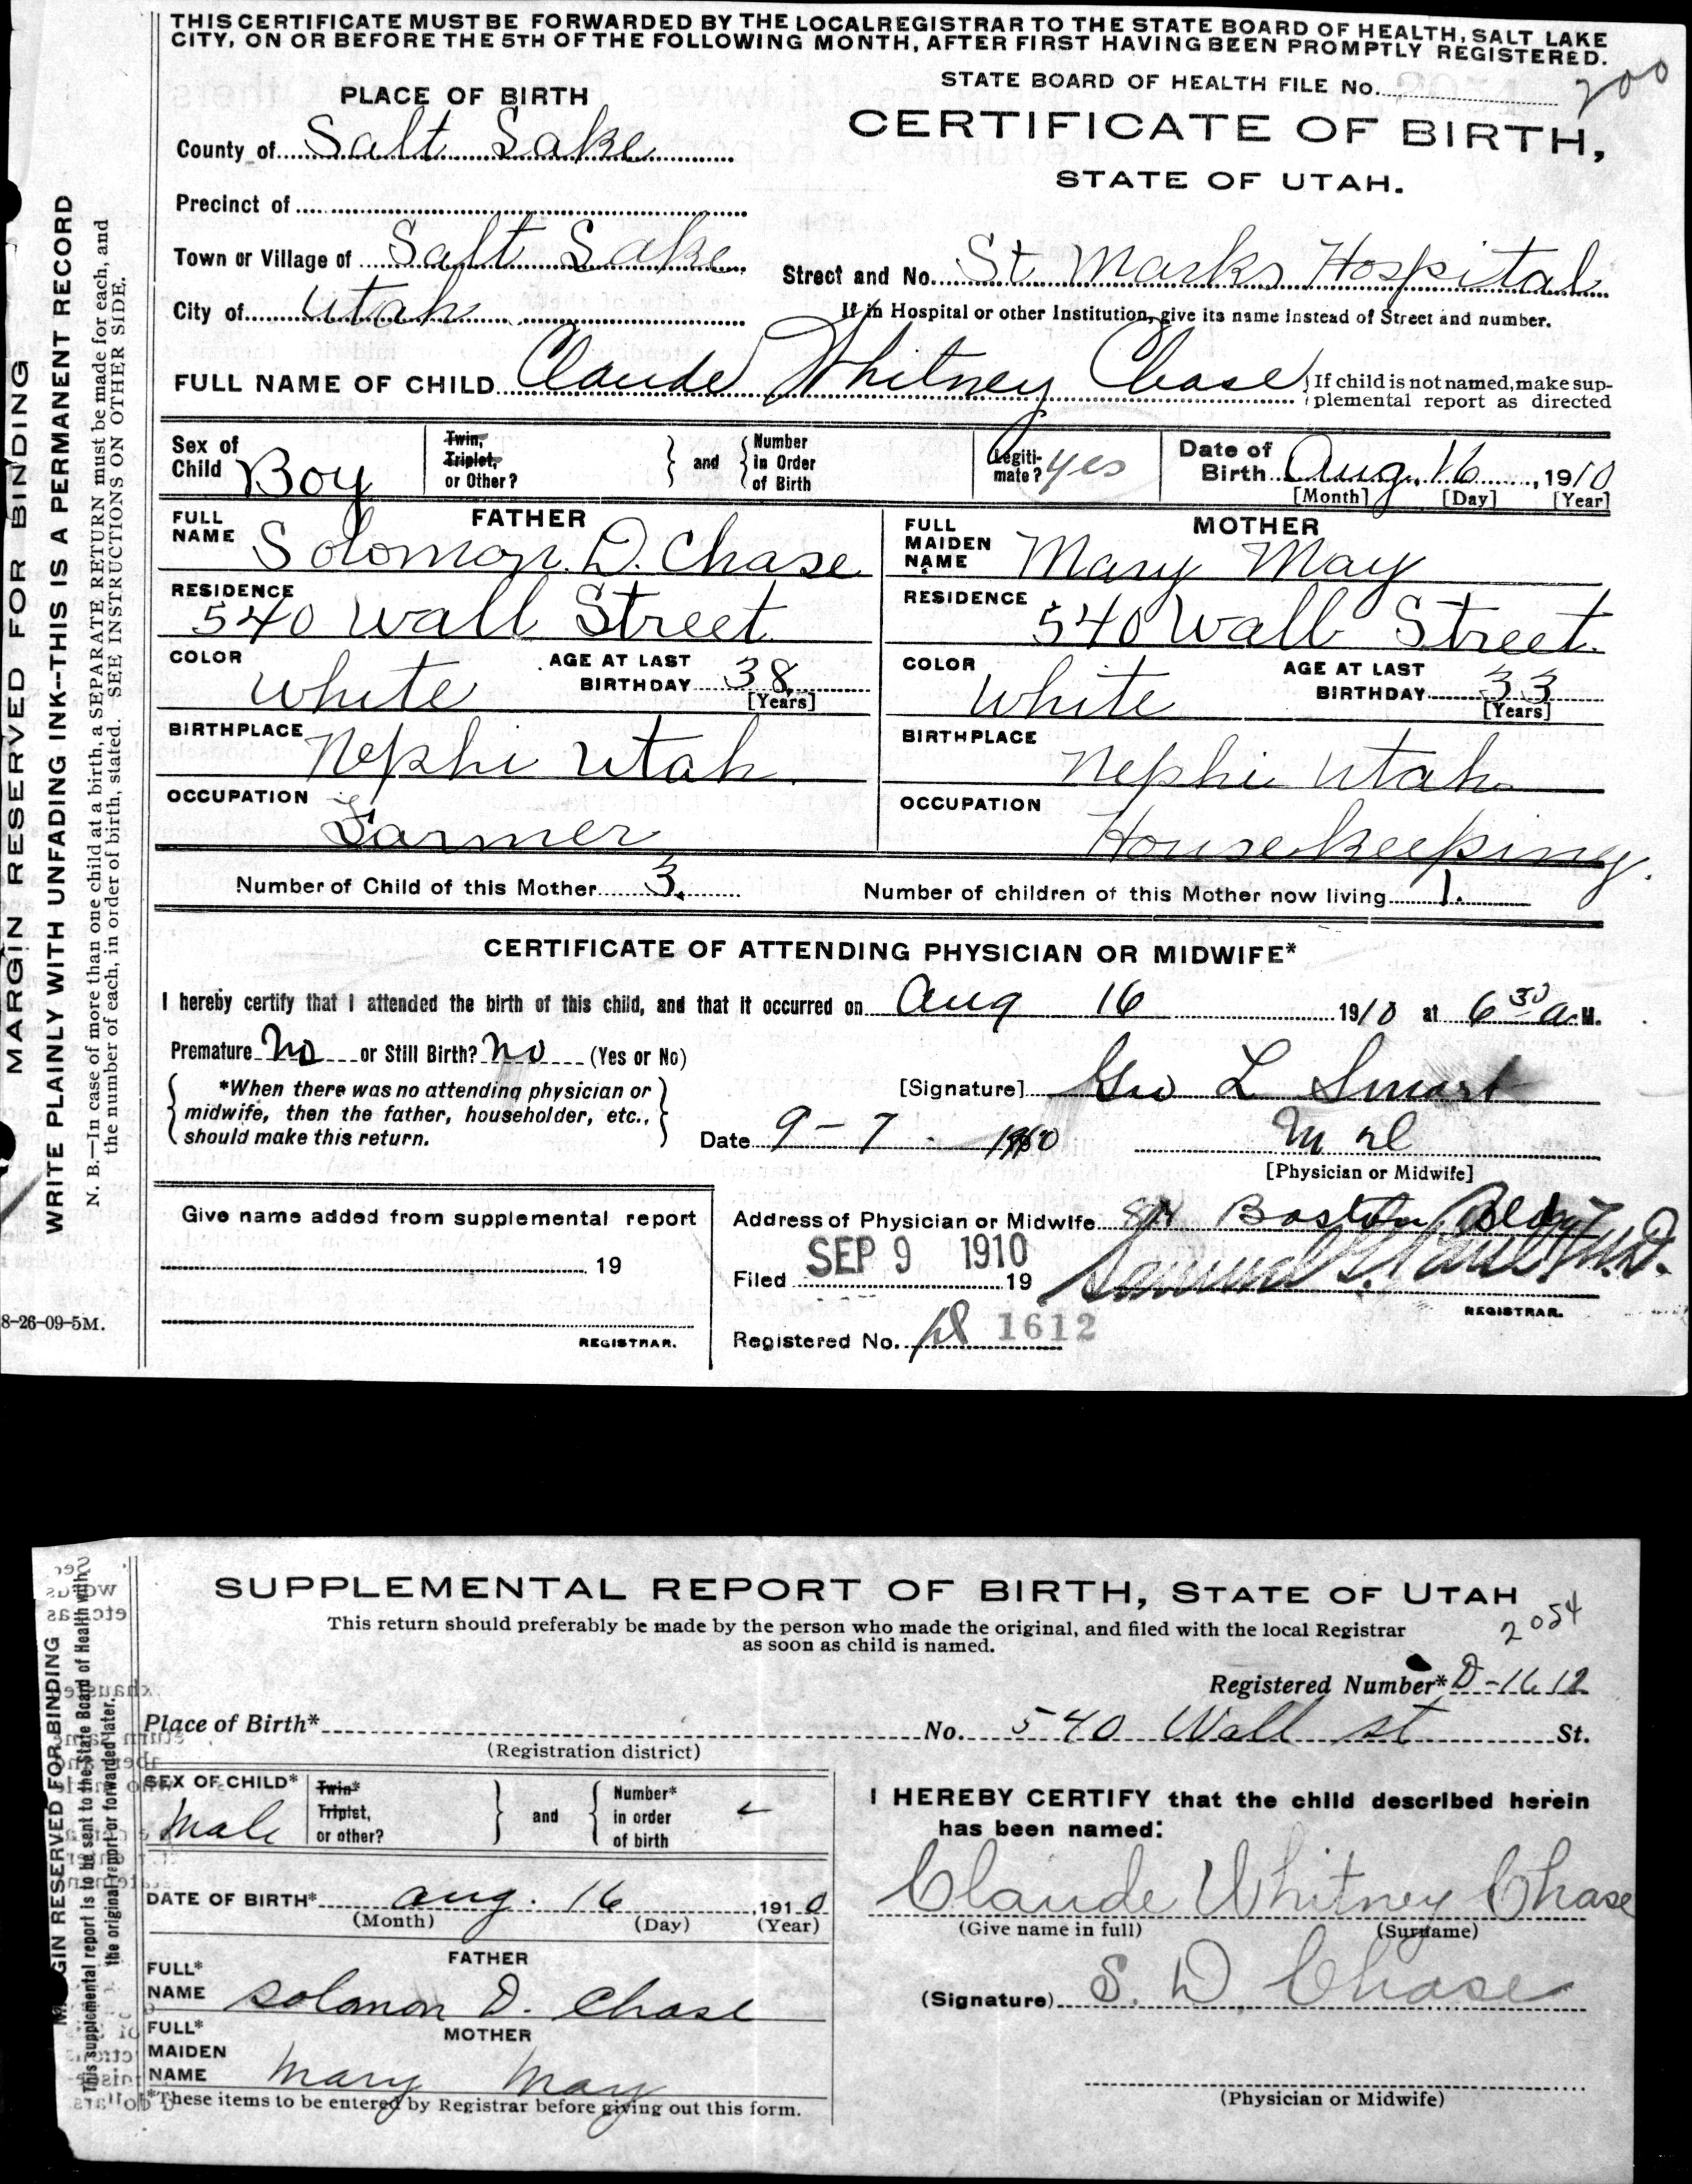 THIS CERTIFICATE MUST BE FORWARDED BY THE LOCAL REGISTRAR TO THE STATE BOARD OF HEALTH, SALT LAKE
CITY, ON OR BEFORE THE 5TH OF THE FOLLOWING MONTH, AFTER FIRST HAVING BEEN PROMPTLY REGISTERED.
STATE BOARD OF HEALTH FILE No. 200
PLACE OF BIRTH
CERTIFICATE OF BIRTH,
STATE OF UTAH.
County of Salt Lake
Precinct of
Town or Village of Salt Lake
Street and No. St Marks Hospital
City of Utah
If in Hospital or other Institution, give its name instead of Street and number.
FULL NAME OF CHILD Claude Whitney Chase
If child is not named, make sup-
plemental report as directed
Sex of Child Boy
Twin, Triplet, or Other?
and
Number in Order of Birth
Legiti-
mate? yes
Date of Birth Aug. 16, 1910
[Month] [Day] [Year]
FATHER
FULL NAME Solomon. D. Chase
RESIDENCE
540 Wall Street
COLOR white
AGE AT LAST BIRTHDAY 38
[Years]
BIRTHPLACE Nephi Utah
OCCUPATION
Farmer
MOTHER
FULL MAIDEN NAME Mary May
RESIDENCE 540 Wall Street.
COLOR white
AGE AT LAST BIRTHDAY 33
[Years]
BIRTHPLACE Nephi Utah
OCCUPATION
Housekeeping.
Number of Child of this Mother 3.
Number of children of this Mother now living 1.
CERTIFICATE OF ATTENDING PHYSICIAN OR MIDWIFE*
I hereby certify that I attended the birth of this child, and that it occurred on Aug 16 1910 at 6 30 A.M.
Premature No or Still Birth? No (Yes or No)
*When there was no attending physician or
midwife, then the father, householder, etc.,
should make this return.
[Signature] Geo L Smart
Date 9-7-
M D
[Physician or Midwife]
Give name added from supplemental report
19
REGISTRAR.
Address of Physician or Midwife Boston Bldg
Filed SEP 9 1910 19
REGISTRAR.
Registered No. 1612
MARGIN RESERVED FOR BINDING
WRITE PLAINLY WITH UNFADING INK--THIS IS A PERMANENT RECORD
N. B.—In case of more than one child at a birth, a SEPARATE RETURN must be made for each, and
the number of each, in order of birth, stated. SEE INSTRUCTIONS ON OTHER SIDE.
8-26-09-5M.
SUPPLEMENTAL REPORT OF BIRTH, STATE OF UTAH
This return should preferably be made by the person who made the original, and filed with the local Registrar
as soon as child is named.
2054
Registered Number* D-1612
Place of Birth* No. 540 Wall st St.
(Registration district)
SEX OF CHILD*
Male
Twin* Triplet, or other?
and
Number* in order of birth
DATE OF BIRTH* aug. 16, 1910
(Month) (Day) (Year)
FATHER
FULL* NAME Solomon D. Chase
MOTHER
FULL* MAIDEN NAME Mary May
*These items to be entered by Registrar before giving out this form.
I HEREBY CERTIFY that the child described herein
has been named:
Claude Whitney Chase
(Give name in full) (Surname)
(Signature) S. D. Chase
(Physician or Midwife)
MARGIN RESERVED FOR BINDING
This supplemental report is to be sent to the State Board of Health with
the original report or forwarded later.